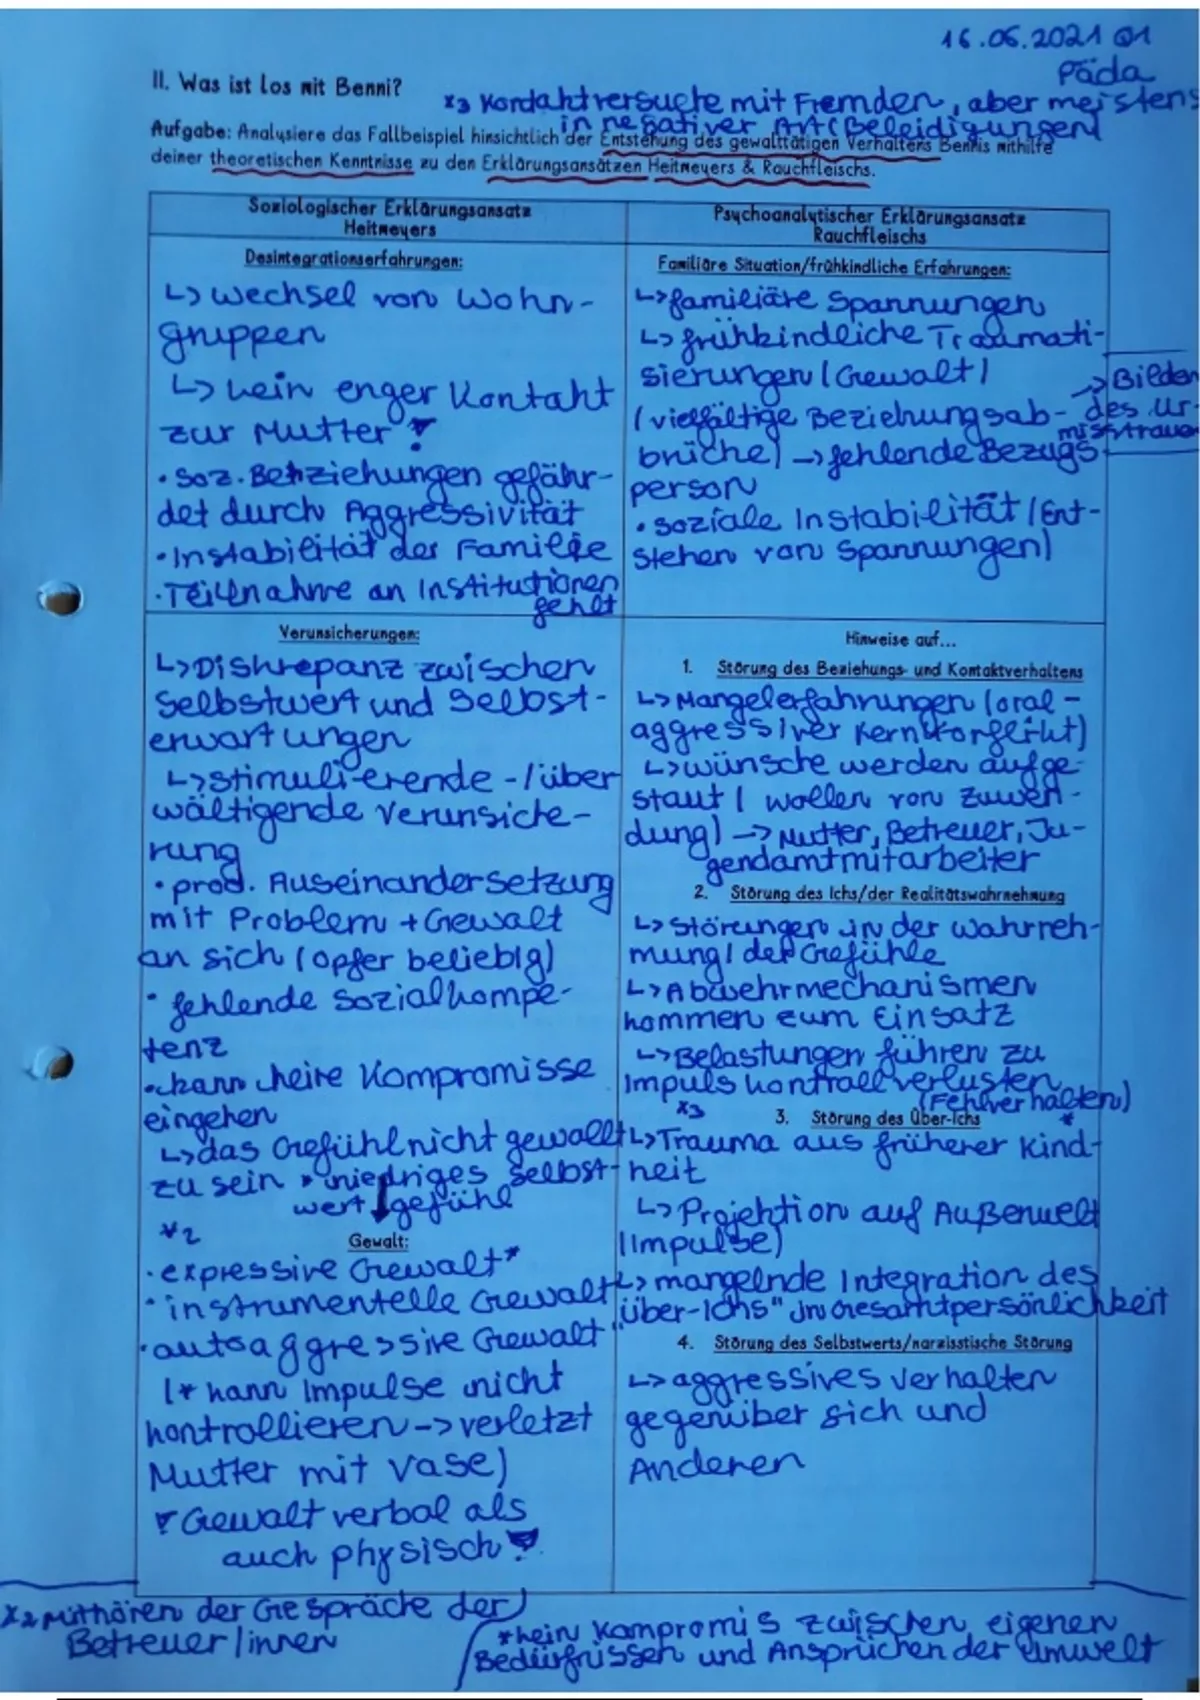 16.06.2021 Q1
Päda
II. Was ist los mit Benni?
x3 Kontaktversuche mit Fremden, aber meistens
in negativer Art (Beleidigungen)
Aufgabe: Analysiere das Fallbeispiel hinsichtlich der Entstehung des gewalttätigen Verhaltens Bennis mithilfe
deiner theoretischen Kenntnisse zu den Erklärungsansätzen Heitmeyers & Rauchfleischs.
Soziologischer Erklärungsansatz
Heitmeyers
Desintegrationserfahrungen:
↳ Wechsel von Wohn-
gruppen
↳ kein enger Kontakt
zur Mutter
• Soz. Behziehungen gefähr-
det durch Aggressivität
• Instabilität der Familie
• Teilnahme an Institutionen
fehlt
Verunsicherungen:
↳ Diskrepanz zwischen
Selbstwert und Selbst-
erwartungen
↳ stimulierende -/über
wältigende Verunsiche-
rung
• prod. Auseinandersetzung
mit Problem + Gewalt
an sich (Opfer beliebig)
• fehlende Sozialkompe-
tenz
• kann keine Kompromisse
eingehen
↳ das Gefühl nicht gewollt
zu sein • niedriges Selbst-
wertgefühl
x2
Gewalt:
• expressive Gewalt*
• instrumentelle Gewalt
• autoaggressive Gewalt
(* kann Impulse nicht
kontrollieren -> verletzt
Mutter mit Vase)
Gewalt verbal als
auch physisch
Psychoanalytischer Erklärungsansatz
Rauchfleischs
Familiäre Situation/frühkindliche Erfahrungen:
↳ familiäre Spannungen
↳ frühkindliche Traumati-
sierungen (Gewalt)
(vielfältige Beziehungsab-
brüche) -> fehlende Bezugs-
person
-> Bilden
des Ur-
misstrauen
• soziale Instabilität (Ent-
stehen von Spannungen)
Hinweise auf...
1. Störung des Beziehungs- und Kontaktverhaltens
↳ Mangelerfahrungen (oral-
aggressiver Kernkonflikt)
↳ Wünsche werden aufge-
staut (wollen von Zuwen-
dung) -> Mutter, Betreuer, Ju-
gendamtmitarbeiter
2. Störung des Ichs/der Realitätswahrnehmung
↳ Störungen in der Wahrneh-
mung/ der Gefühle
↳ Abwehrmechanismen
kommen zum Einsatz
↳ Belastungen führen zu
Impulskontrollverlusten
(Fehlverhalten)
x3
3. Störung des Über-Ichs
*
↳ Trauma aus früherer Kind-
heit
↳ Projektion auf Außenwelt
(Impulse)
↳ mangelnde Integration des
"Über-Ichs" in Gesamtpersönlichkeit
4. Störung des Selbstwerts/narzisstische Störung
↳ aggressives Verhalten
gegenüber sich und
Anderen
x2 mithören der Gespräche der
Betreuer/innen
* kein Kompromis zwischen eigenen
Bedürfnissen und Ansprüchen der Umwelt